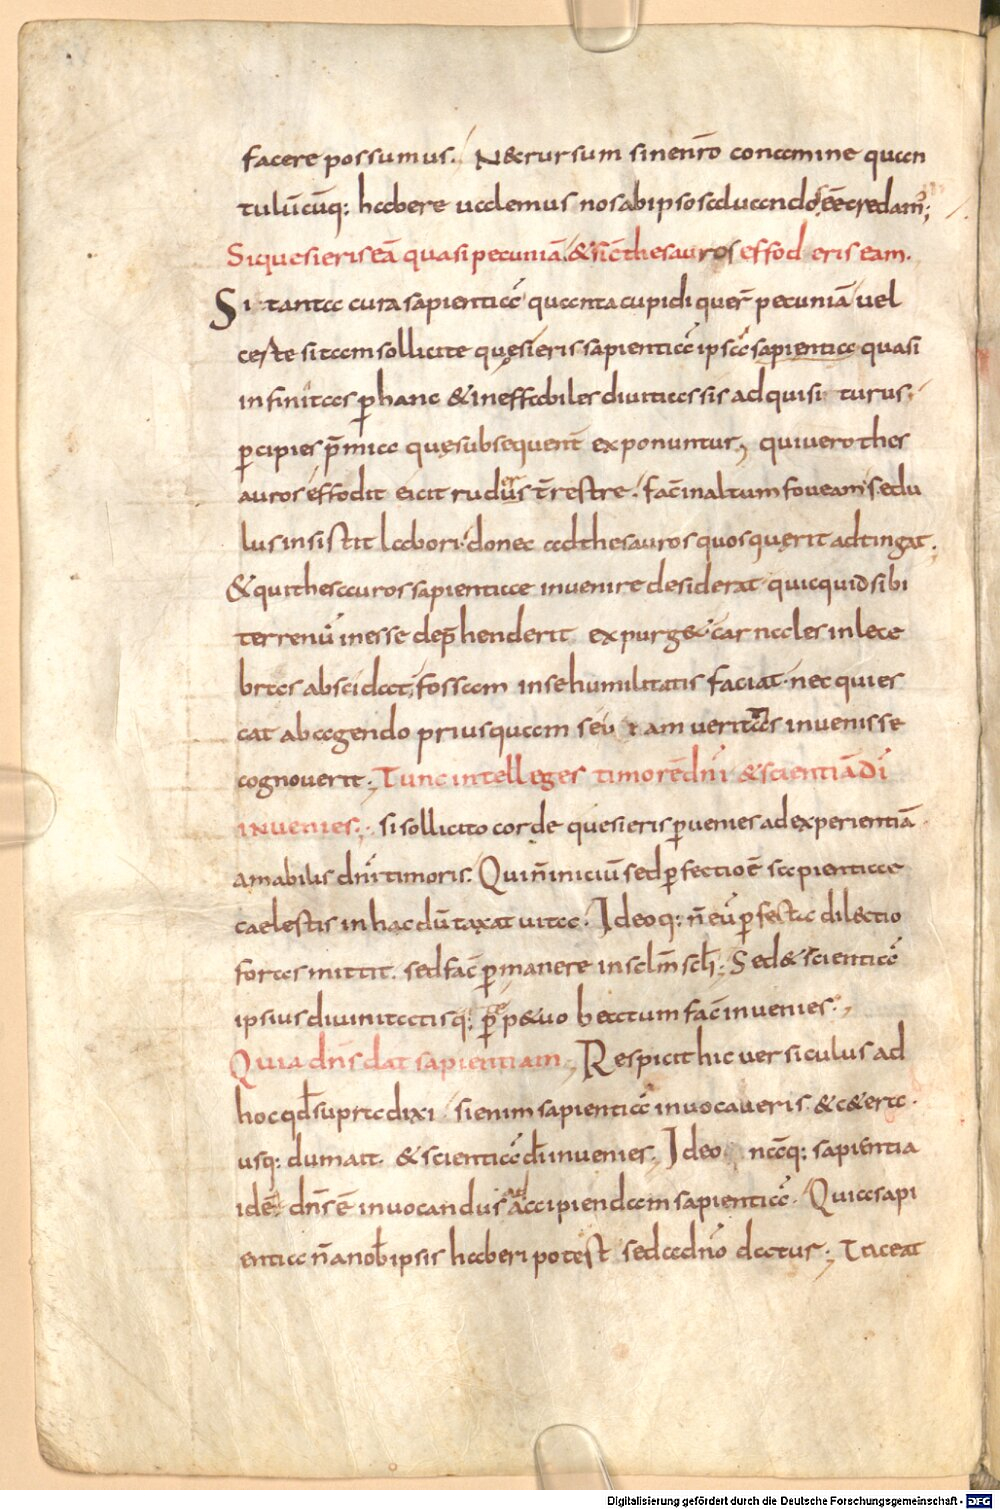 facere possumus. Necrursum sinenr̄o conamine quan
tulūcūq; habere ualemus nos ab ipso saluando eē credam;
Siquesieris eā quasi pecuniā & sic̄ thesauros effoderis eam.
Si tanta cura sapientiā quanta cupidi quer̄ pecuniā uel
ceste sitam sollicite quęsieris sapientiā ipsā sapientia quasi
infinitas ꝑ hanc & ineffabiles diuitias sis adquisiturus;
ꝑcipies p̄mia quęsubsequent̄ exponuntur, quiuero thes
auros effodit eicit rudus t̄restre. fac̄ in altum foueam sedu
lus insistit labori. donec ad thesauros quos querit adtingat;
& qui thesauros sapientiae inuenire desiderat quicquid sibi
terrenū inesse dep̄henderit expurg& carnales inlece
bras abscidat; fossam in se humilitatis faciat. nec quies
cat ab agendo priusquam se iam ueritatis inuenisse
cognouerit; Tunc intelleges timorē dn̄i & scientiā dī
inuenies; si sollicito corde quesieris ꝑuenies ad experientiā
amabilis dn̄i timoris. Qui n̄ iniciū sed ꝑfectio ē sapientiae
caelestis in hac dūtaxat uita. Ideoq; n̄ eū ꝑfecta dilectio
foras mittit. sed fac̄ ꝑmanere in sc̄lm̄ scl̄i; Sed & scientiā
ipsius diuinitatisq; ꝑp&uo beatum fac̄ inuenies;
Quia dn̄s dat sapientiam; Respicit hic uersiculus ad
hoc qd̄ supra dixi. si enim sapientiā inuocaueris & c&era.
usq; dum ait. & scientiā dī inuenies. Ideo nāq; sapientia
idē dn̄s ē inuocandus ad accipiendam sapientiā. Quia sapi
entia n̄ a nob̄ ipsis haberi potest sed a dn̄o datus; Itaceat